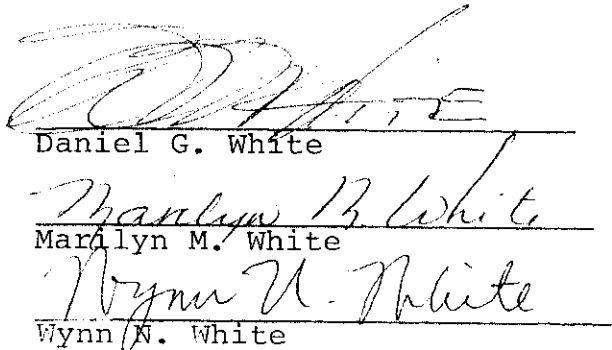 White
Daniel G. White
Marilyn M. White
Marilyn M. White
Wynn N. White
Wynn N. White